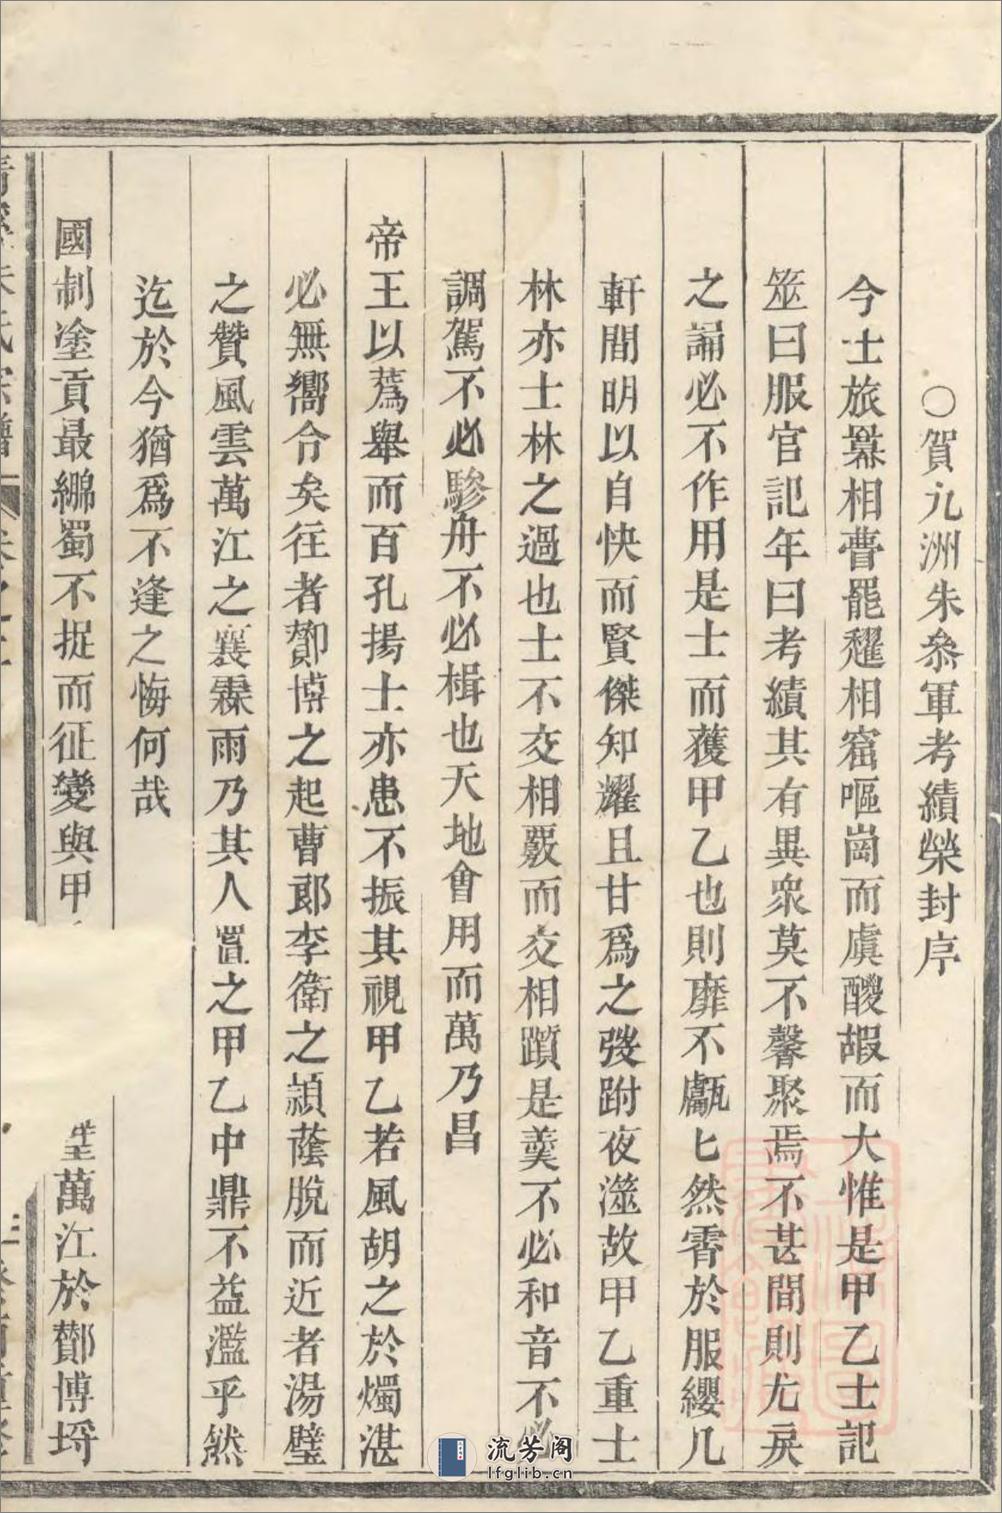 ○賀九洲朱叅軍考績榮封序
今士旅羃相瞢罷糶相窟嘔崗而虞醙嘏而大惟是甲乙士記
筮曰服官記年曰考績其有異衆莫不馨聚焉不甚間則尤戾
之誦必不作用是士而蒦甲乙也則靡不甗匕然霄於服纓几
軒間明以自快而賢傑知耀且甘爲之發跗夜澨故甲乙重士
林亦士林之過也士不交相覈而交相躓是羹不必和音不必
調駕不必驂舟不必楫也天地會用而萬乃昌
帝王以薦舉而百孔揚士亦患不振其視甲乙若風胡之於燭湛
必無嚮合矣往者鄼博之起曹郎李衛之潁蔭脫而近者湯壁
之贊風雲萬江之襄霖雨乃其人置之甲乙中鼎不益濫乎然
迄於今猶爲不逢之悔何哉
國制塗貢最綳蜀不捉而征變與甲
萬江於鄼博埒
流芳阁
lfglib.cn